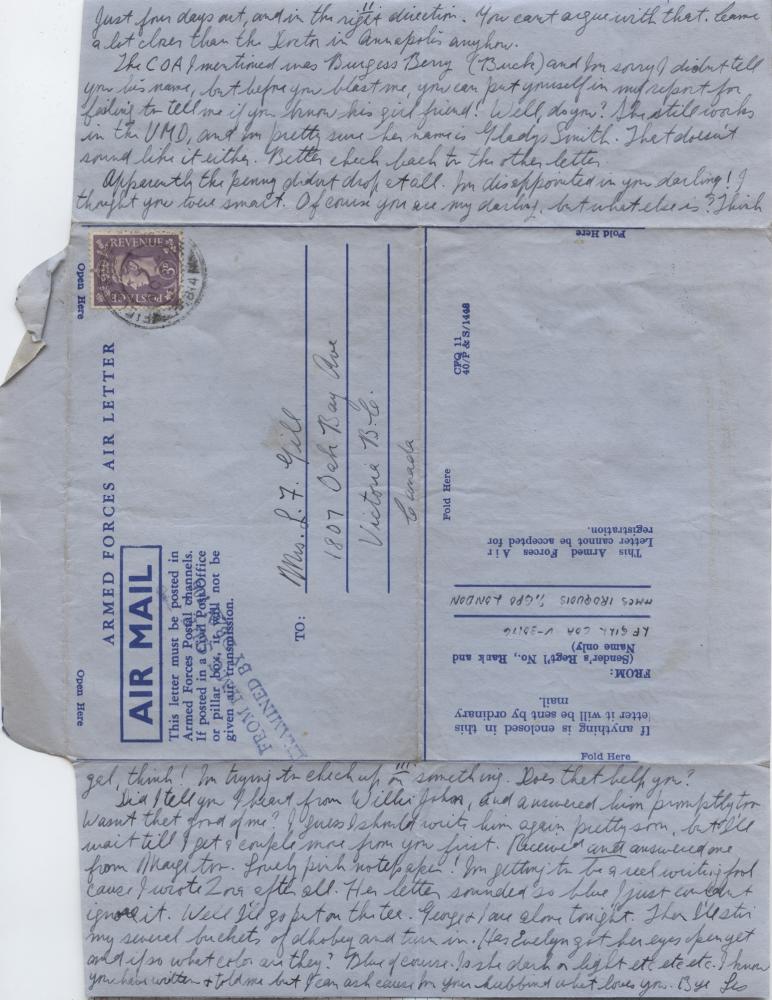 Just four days out, and in the right direction. You cant argue with that. Came
a lot closer than the Doctor in Annapolis anyhow.
The COA I mentioned was Burgess Berry (Buck) and Im sorry I didnt tell
you his name, but before you blast me, you can put yourself in my report for
failing to tell me if you know his girl friend! Well, do you? She still works
in the VMD, and im pretty sure her name is Gladys Smith. That doesn't
sound like it either. Better check back to the other letter.
Apparently the penny didnt drop at all. Im disappointed in you darling! I
thought you were smart. Of course you are my darling, but what else is? Think
Open Here
REVENUE
POSTAGE
ARMED FORCES AIR LETTER
AIR MAIL
This letter must be posted in
Armed Forces Postal channels.
If posted in a Civil Post Office
or pillar box, it will not be
given air transmission.
EXAMINED BY
TO:
Mrs. L. F. Gill
1807 Oak Bay Ave
Victoria B.C.
Canada
Open Here
Fold Here
CFO 11
40/P & S/1448
Fold Here
Fold Here
If anything is enclosed in this
letter it will be sent by ordinary
mail.
FROM:
(Sender's Regt'l No., Rank and
Name only)
L F GILL COA V-30176
HMCS IROQUOIS GPO LONDON
This Armed Forces Air
Letter cannot be accepted for
registration.
gal, think! Im trying to check up on something. Does that help you?
Did I tell you I heard from Willie John, and answered him promptly too
Wasnt that good of me? I guess I should write him again pretty soon, but I'll
wait till I get a couple more from you first. Received and answered one
from Marge too. Lovely pink notepaper! Im getting to be a real writing fool
cause I wrote Zora after all. Her letter sounded so blue I just couldnt
ignore it. Well I'll go put on the tea. George & I are alone tonight. Then I'll stir
my several buckets of dhobey and turn in. Has Evelyn got her eyes open yet
and if so what color are they? Blue of course. Is she dark or light etc etc etc. I know
you have written & told me but I can ask cause Im your hubbund what loves you. Bye Les